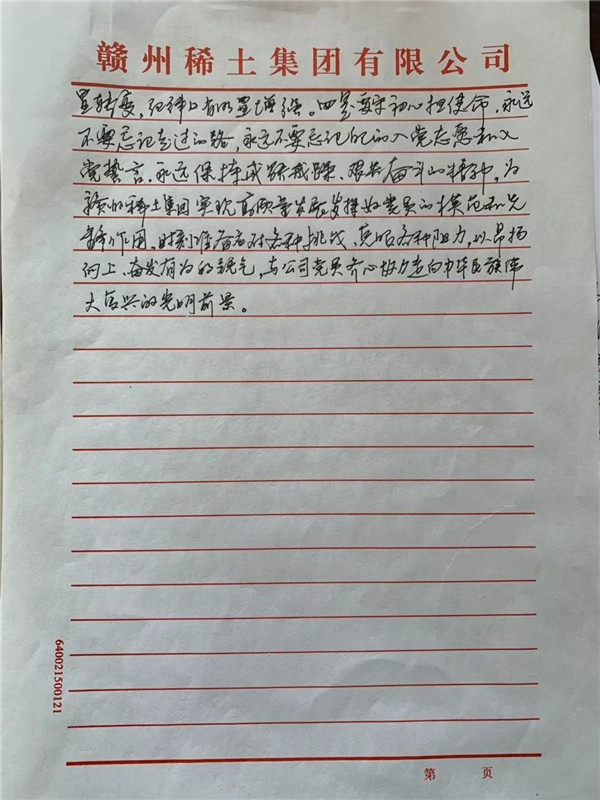 赣州稀土集团有限公司
显转变,纪律上有明显增强。四是要守初心担使命,永远
不要忘记走过的路,永远不要忘记自己的入党志愿和入
党誓言,永远保持戒骄戒躁、艰苦奋斗的精神,为
赣州稀土集团实现高质量发展发挥好党员的模范和先
锋作用。时刻准备应对各种挑战、克服各种阻力,以昂扬
向上、奋发有为的锐气,与公司党员齐心协力走向中华民族伟
大复兴的光明前景。
640021500121
第 页